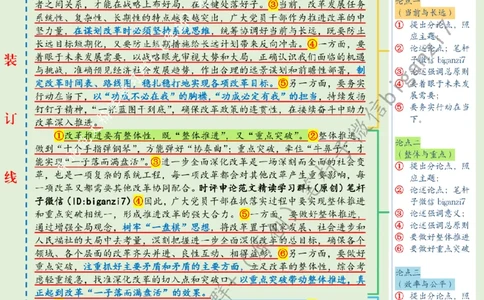 者之间关系，才能在战略上布好局，在关键处落好子。③当前，改革发展任务
系统性、复杂性、长期性的特点越来越突出，广大党员干部作为推进改革的中
坚力量，在谋划改革时必须坚持系统思维，统筹协调好当前与长远，既要防止
长远目标短期化，又要防止短期措施给长远计划带来反向冲击。④一方面，要
着眼于未来发展需要，以战略眼光审视大势和大局，正确认识我们面临的机遇
与挑战，准确预见经济社会发展趋势，作出合理的远景谋划和前瞻性部署，制
定改革时间表、路线图，稳扎稳打地实现各项改革目标。⑤另一方面，要务实
行动在当下，以“功成不必在我”的胸襟，“功成必定有我”的担当，持续发扬
钉钉子精神，“一张蓝图干到底”，确保改革政策的连贯性，在接续奋斗中助力
改革深入推进。
①改革推进要有整体性，既“整体推进”，又“重点突破”。②整体推进，
做到“十个手指弹钢琴”，方能弹好“协奏曲”；重点突破，牵住“牛鼻子”，才
能实现“一子落而满盘活”。③进一步全面深化改革是一场深刻而全面的社会变
革，也是一项复杂的系统工程，每一项改革都会对其他改革产生重要影响，每
一项改革又都需要其他改革协同配合。时评申论范文精读学习群+(原创)笔杆
子微信(ID:biganzi7)④因此，广大党员干部在抓落实过程中要实现整体推进
和重点突破相统一，形成推进改革的强大合力。⑤一方面，要做好整体推进，
通过增强全局观念，树牢“一盘棋”思想，将改革置于国家发展、社会进步和
人民福祉的大局中去考量，深刻把握进一步全面深化改革的总目标，确保各个
领域、各个层面的改革齐头并进、良性互动、相得益彰。⑥另一方面，要做好
重点突破，注重抓好主要矛盾和矛盾的主要方面，在义改革的整体性，综合考
虑轻重缓急，找准深化改革的切入点和突破口，以重点突破带动整体推进，真
起到改革“一子落而满盘活”的效果。
装
订
线
论点一
(当前与长远)
① 提出分论点，照
应主题；
② 论述论点；笔杆
子微信 biganzi7
③ 论述强调总原则
④ 要着眼于未来发
展需要；
⑤ 要务实行动在当
下。
论点二
(整体与重点)
① 提出分论点，照
应主题；
② 论述论点；笔杆
子微信 biganzi7
③ 论述强调意义；
④ 论述强调原则；
⑤ 要做好整体推进
⑥ 要做好整体推进
论点三
(效率与公平)
① 提出分论点，照